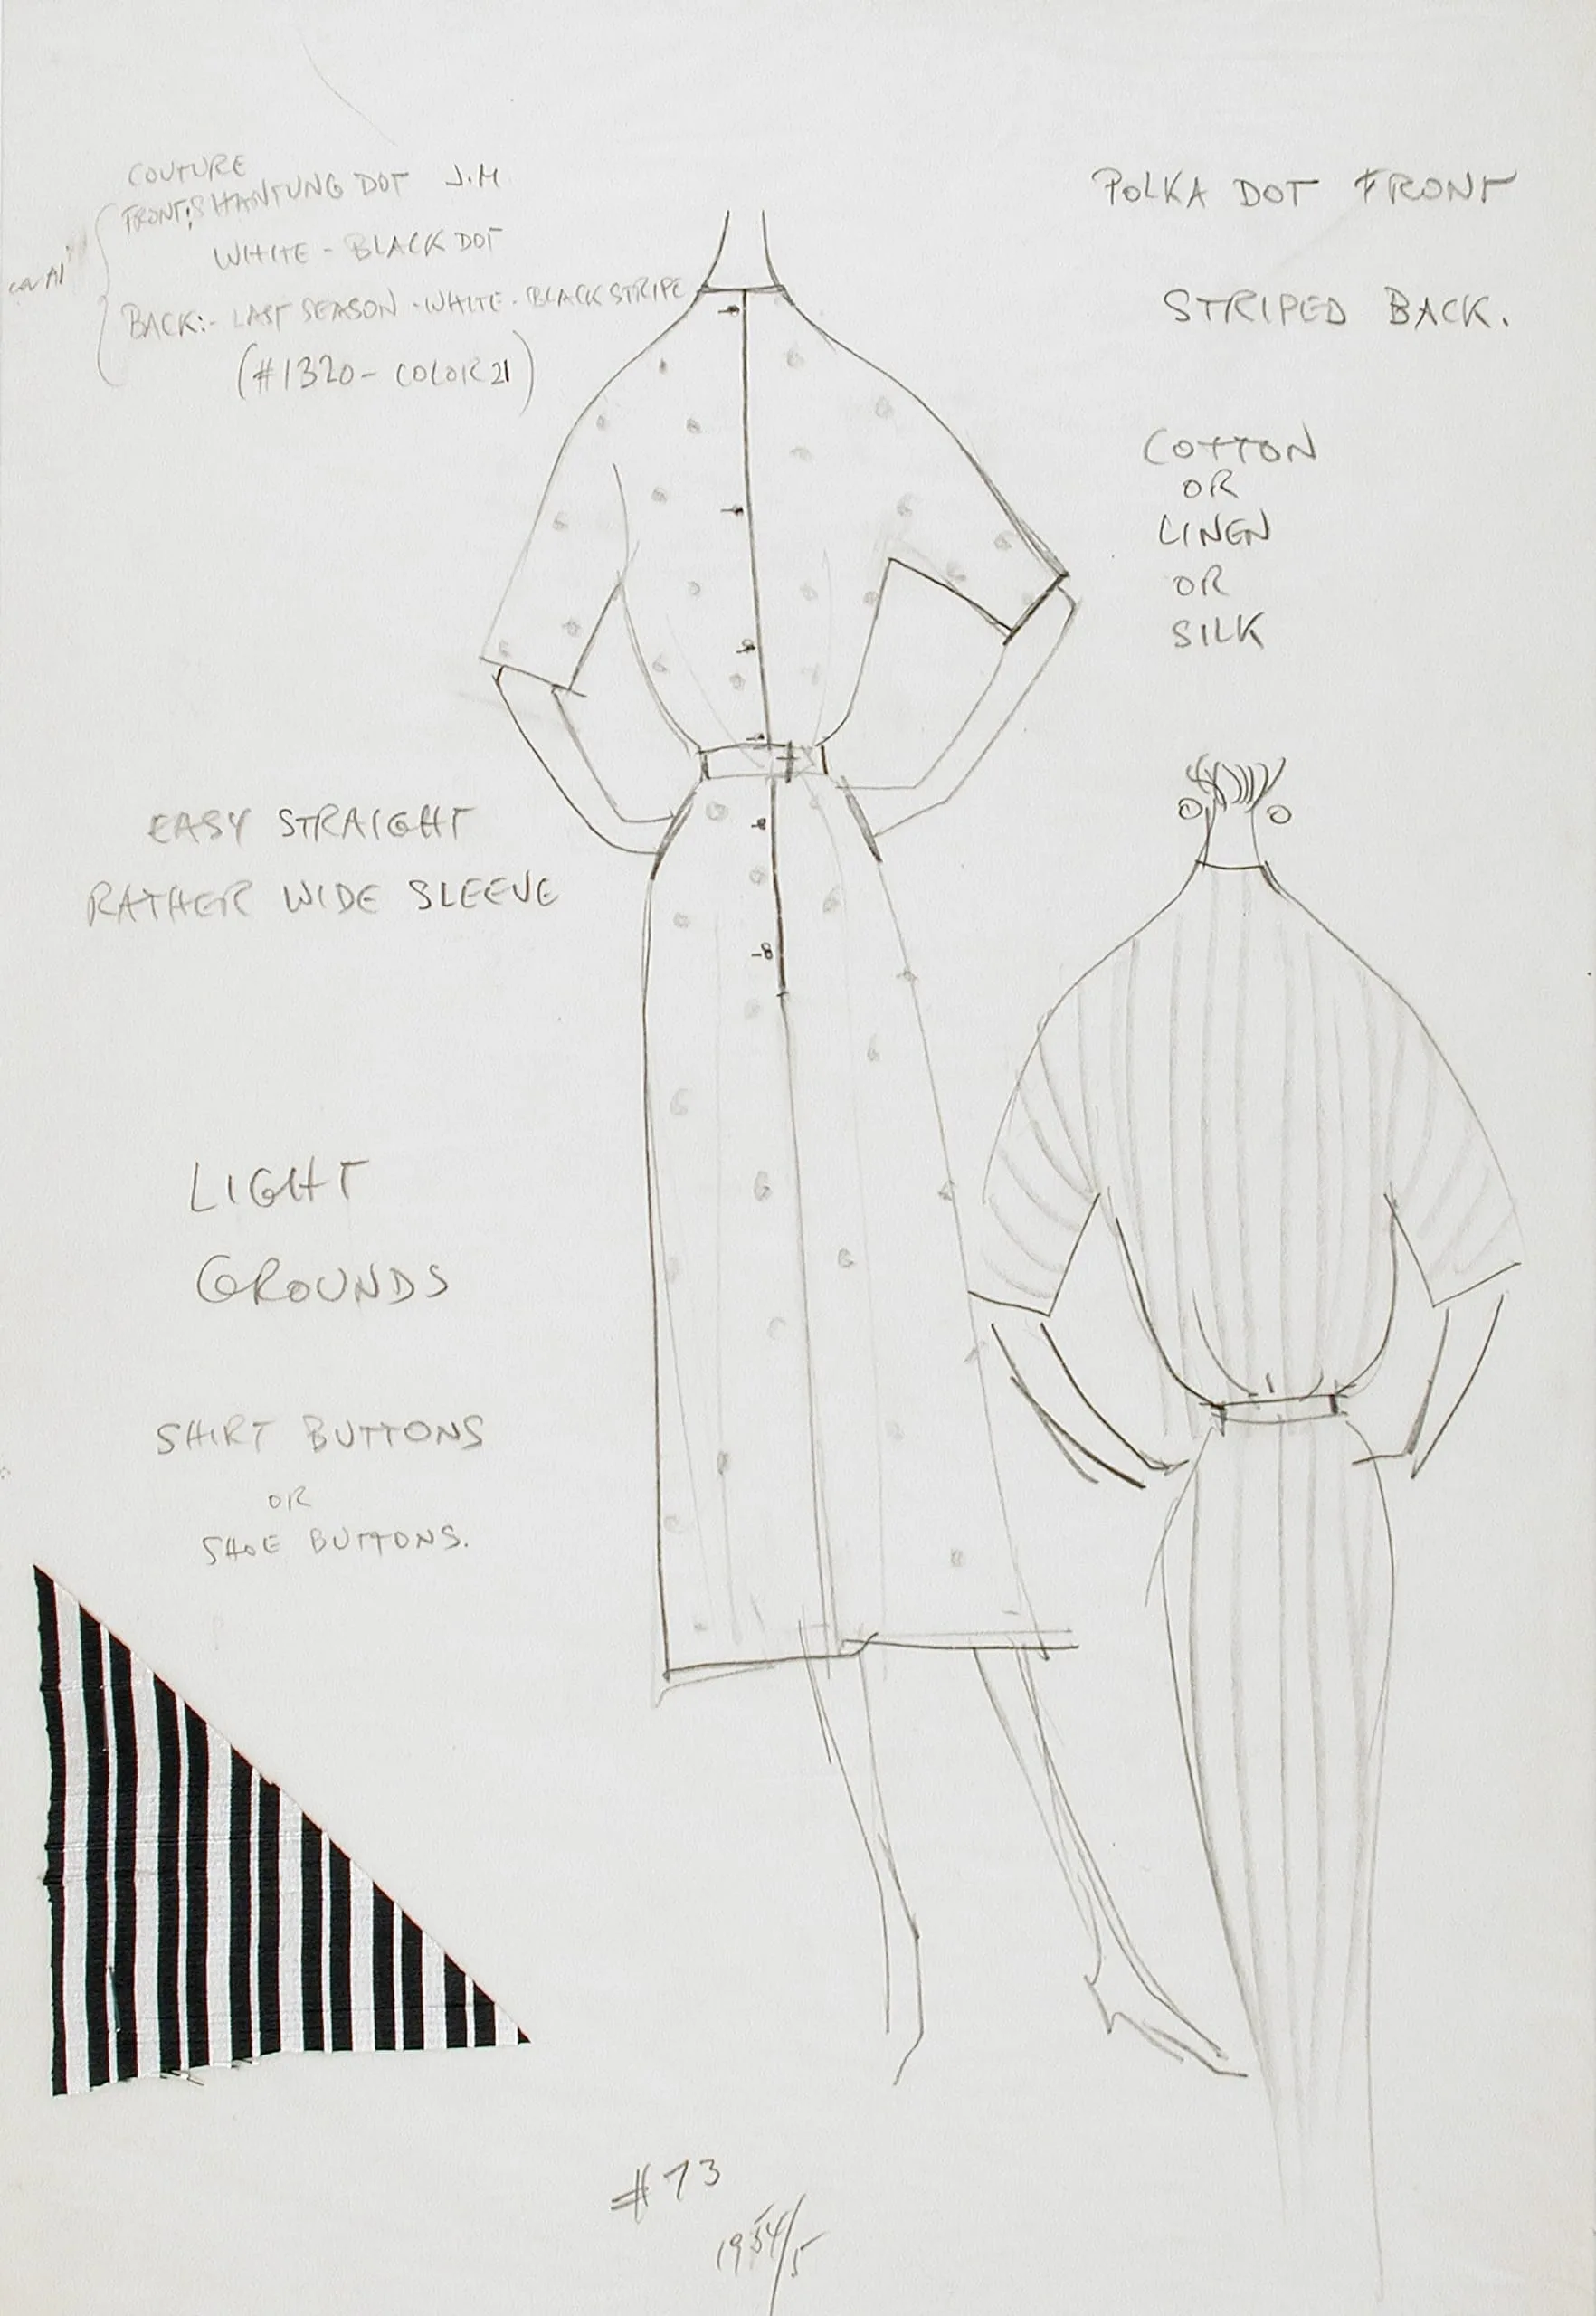 COUTURE
FRONT: SHANTUNG DOT J.M
WHITE - BLACK DOT
BACK:- LAST SEASON - WHITE - BLACK STRIPE
(#1320 - COLOR 21)
POLKA DOT FRONT
STRIPED BACK.
COTTON
OR
LINEN
OR
SILK
EASY STRAIGHT
RATHER WIDE SLEEVE
LIGHT
GROUNDS
SHIRT BUTTONS
OR
SHOE BUTTONS.
#73
1954/5